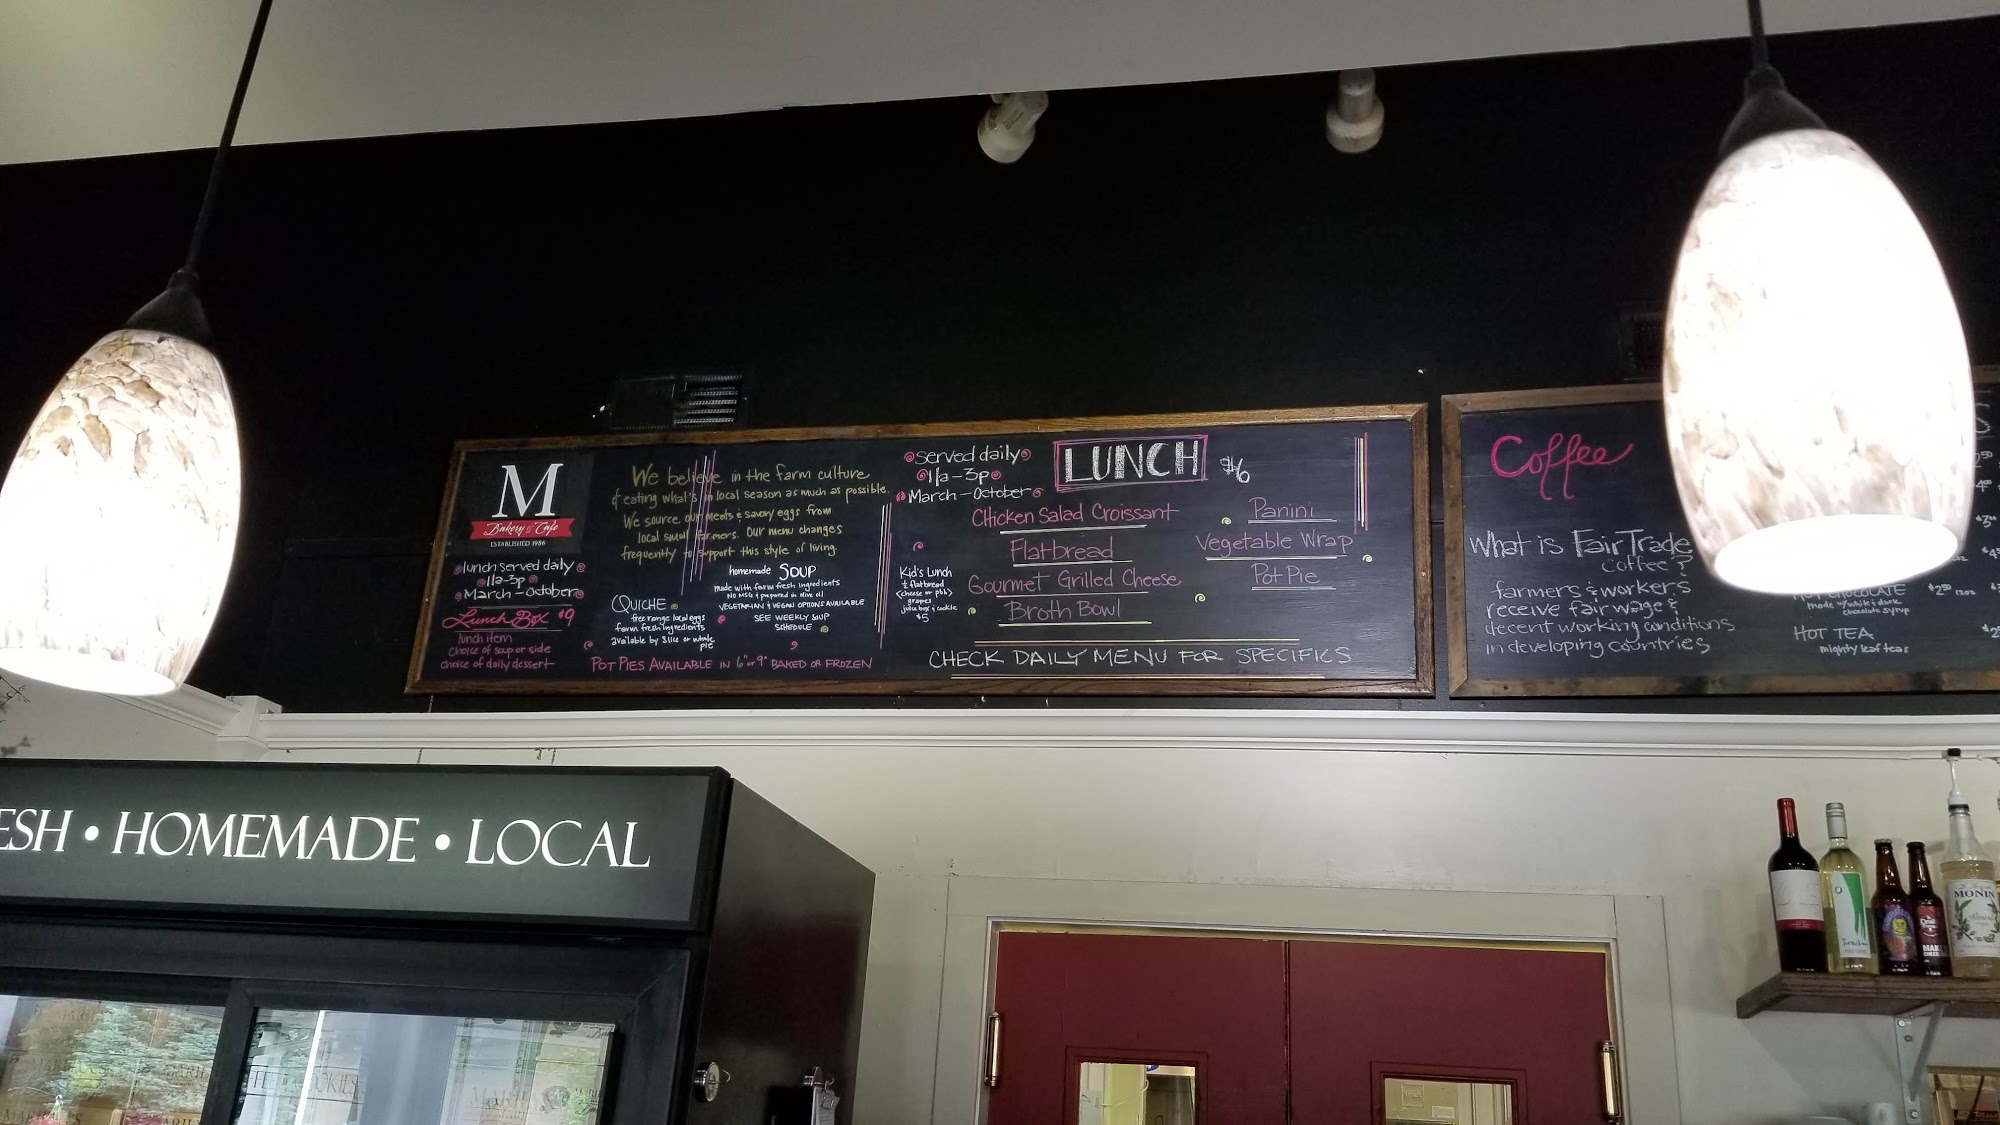 M
Bakery & Cafe
ESTABLISHED 1986
lunch served daily
11a-3p
March - October
Lunch Box $9
lunch item
choice of soup or side
choice of daily dessert
We believe in the farm culture
& eating what's in local season as much as possible.
We source our meats & savory eggs from
local small farmers. Our menu changes
frequently to support this style of living.
QUICHE
free range local eggs
farm fresh ingredients
available by slice or whole
pie
homemade SOUP
made with farm fresh ingredients
NO MSG & prepared in olive oil
VEGETARIAN & VEGAN OPTIONS AVAILABLE
SEE WEEKLY SOUP
SCHEDULE
POT PIES AVAILABLE IN 6" or 9" BAKED OR FROZEN
served daily
11a-3p
March - October
LUNCH $6
Kid's Lunch
½ flatbread
(cheese or pbj)
grapes
juice box & cookie
$5
Chicken Salad Croissant
Flatbread
Gourmet Grilled Cheese
Broth Bowl
Panini
Vegetable Wrap
Pot Pie
CHECK DAILY MENU FOR SPECIFICS
Coffee
What is Fair Trade
coffee?
farmers & workers
receive fair wage &
decent working conditions
in developing countries
made w/ white & dark
chocolate syrup
$2.50 12oz
HOT TEA
mighty leaf teas
ESH • HOMEMADE • LOCAL
MONIN